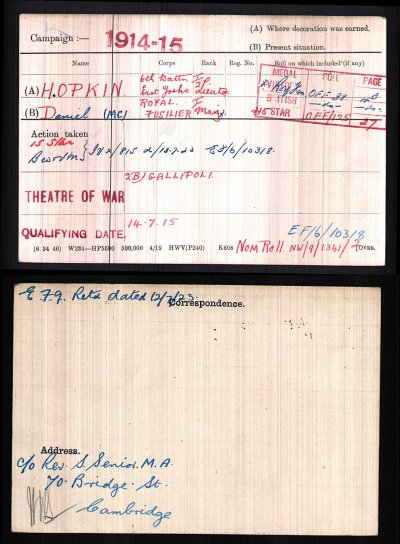 Campaign :— 1914-15
(A) Where decoration was earned.
(B) Present situation.
Name Corps Rank Reg. No. Roll on which included (if any)
MEDAL ROLL PAGE
(A) HOPKIN 6th Battn
East Yorks. Lieut
VICTORY OFF 98
BRITISH -do- -do-
(B) Daniel (MC) ROYAL
FUSILIER Major
15 STAR OFF/125 27
Action taken
15 Star
B war M EF/6/10318.
(2B) GALLIPOLI.
THEATRE OF WAR
14.7.15
QUALIFYING DATE.
EF/6/10318
(6 24 46) W234—HP5590 500,000 4/19 HWV(P240) K608
Nom Roll. NW/9/1341/2 [OVER.
E F9. Retd dated 12/7/23
Correspondence.
Address.
c/o Rev. S. Senior. M.A.
70. Bridge. St.
Cambridge